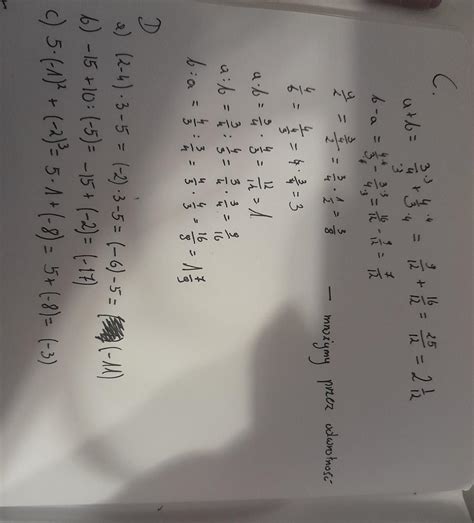 C.
a+b = \frac{3}{4}^{·3}_{·3} + \frac{4}{3}^{·4}_{·4} = \frac{9}{12} + \frac{16}{12} = \frac{25}{12} = 2\frac{1}{12}
b-a = \frac{4·4}{3·4} - \frac{3·3}{4·3} = \frac{16}{12} - \frac{9}{12} = \frac{7}{12}
\frac{a}{2} = \frac{\frac{3}{4}}{2} = \frac{3}{4} · \frac{1}{2} = \frac{3}{8} — mnożymy przez odwrotność
\frac{4}{b} = \frac{4}{\frac{4}{3}} = 4 · \frac{3}{4} = 3
a·b = \frac{3}{4} · \frac{4}{3} = \frac{12}{12} = 1
a:b = \frac{3}{4} : \frac{4}{3} = \frac{3}{4} · \frac{3}{4} = \frac{9}{16}
b:a = \frac{4}{3} : \frac{3}{4} = \frac{4}{3} · \frac{4}{3} = \frac{16}{9} = 1\frac{7}{9}
D
a) (2-4)·3-5 = (-2)·3-5 = (-6)-5 = (-11)
b) -15+10:(-5) = -15+(-2) = (-17)
c) 5·(-1)²+(-2)³ = 5·1+(-8) = 5+(-8) = (-3)